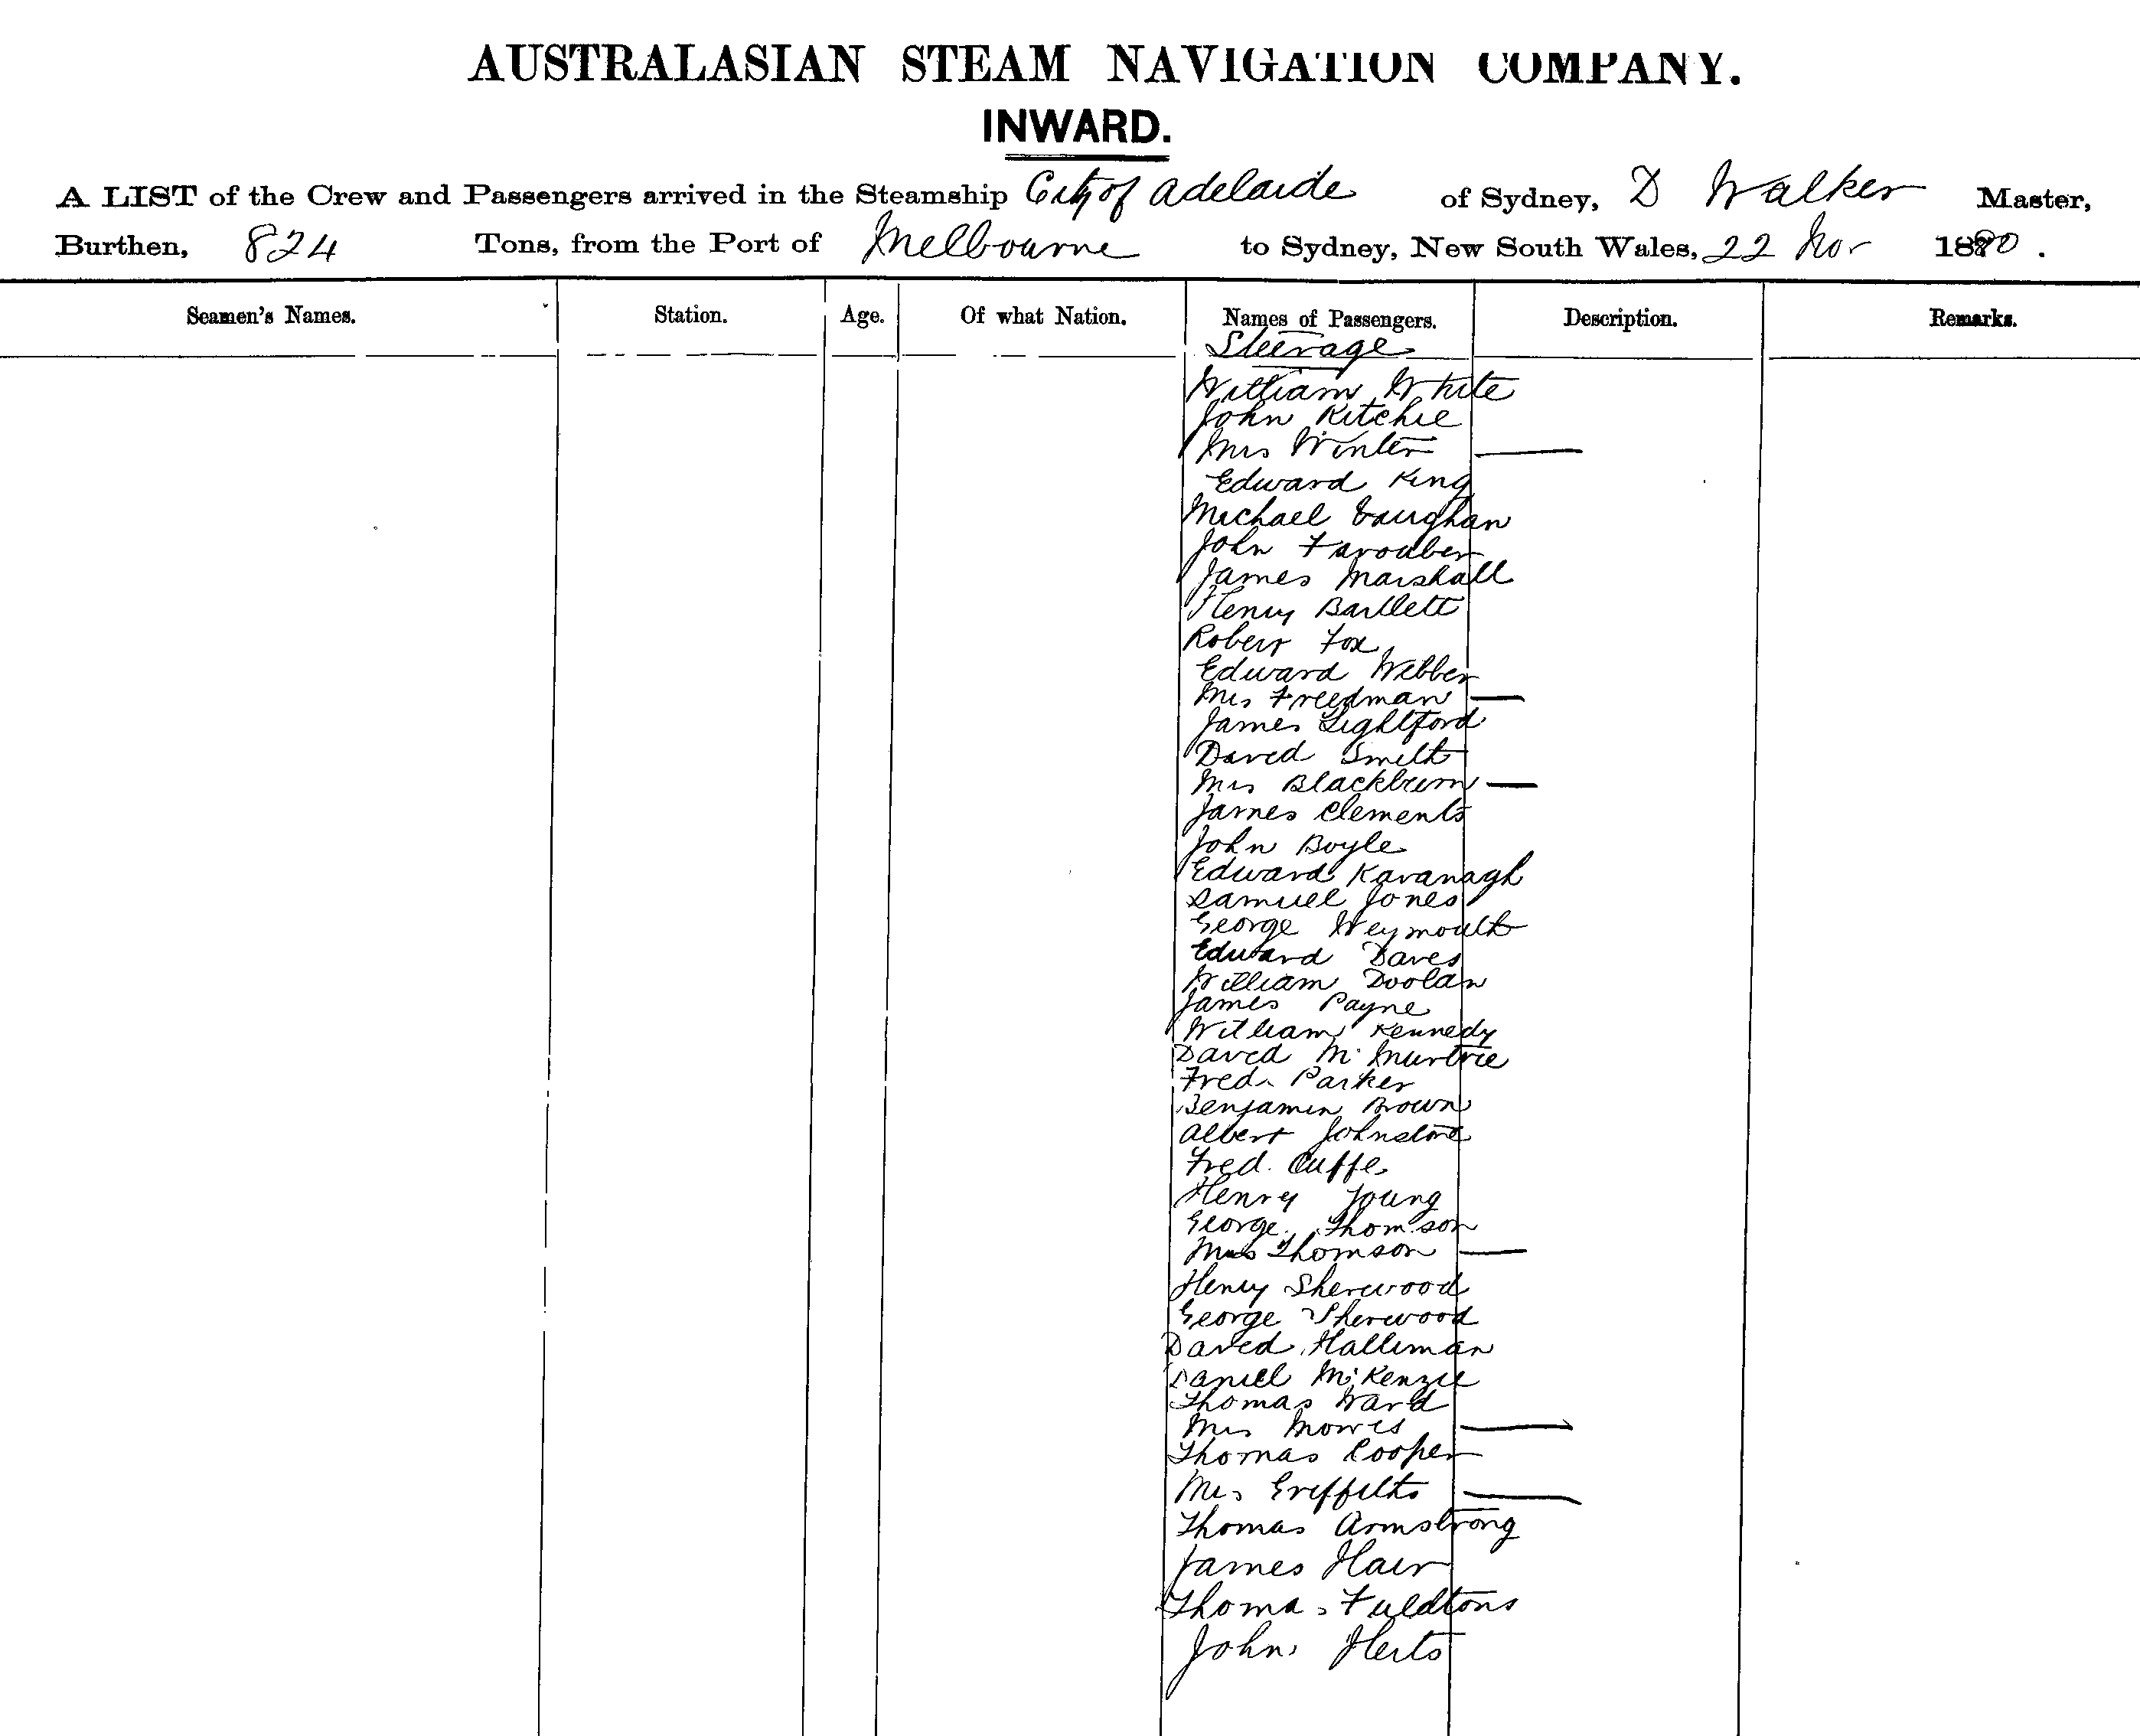 AUSTRALASIAN STEAM NAVIGATION COMPANY.
INWARD.
A LIST of the Crew and Passengers arrived in the Steamship City of Adelaide of Sydney, D Walker Master,
Burthen, 824 Tons, from the Port of Melbourne to Sydney, New South Wales, 22 Nov 1880.
Seamen's Names. Station. Age. Of what Nation. Names of Passengers. Description. Remarks.
Steerage
William White
John Ritchie
Mrs Winter
Edward King
Michael Vaughan
John
James Marshall
Henry Bartlett
Robert Fox
Edward Webber
Mrs Freedman
James Lightford
David Smith
Mrs Blackburn
James Clements
John Boyle
Edward Kavanagh
Samuel Jones
George Weymouth
Edward Daves
William Doolan
James Payne
William Kennedy
David McMurtrie
Fred. Parker
Benjamin Brown
Albert Johnstone
Fred. Cuffe
Henry Young
George Thomson
Mrs Thomson
Henry Sherwood
George Sherwood
David Halliman
Daniel McKenzie
Thomas Ward
Mrs
Thomas Cooper
Mrs Griffiths
Thomas Armstrong
James Hair
Thomas
John Herts